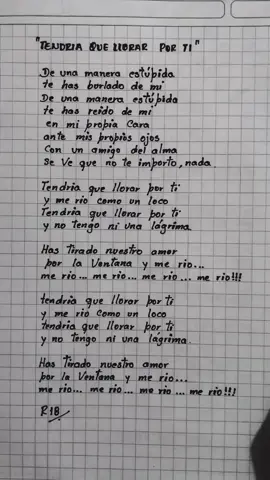 "TENDRIA QUE LLORAR POR TI"
De una manera estúpida
te has burlado de mi
De una manera estúpida
te has reido de mi
en mi propia cara
ante mis propios ojos
Con un amigo del alma
Se Ve que no te importo, nada.
Tendria que llorar por ti
y me rio como un loco
Tendria que llorar por ti
y no tengo ni una lágrima.
Has tirado nuestro amor
por la Ventana y me rio...
me rio... me rio... me rio... me rio!!!
tendria que llorar por ti
y me rio como un loco
tendria que llorar por ti
y no tengo ni una lágrima.
Has tirado nuestro amor
por la Ventana y me rio...
me rio... me rio... me rio... me rio!!!
R18